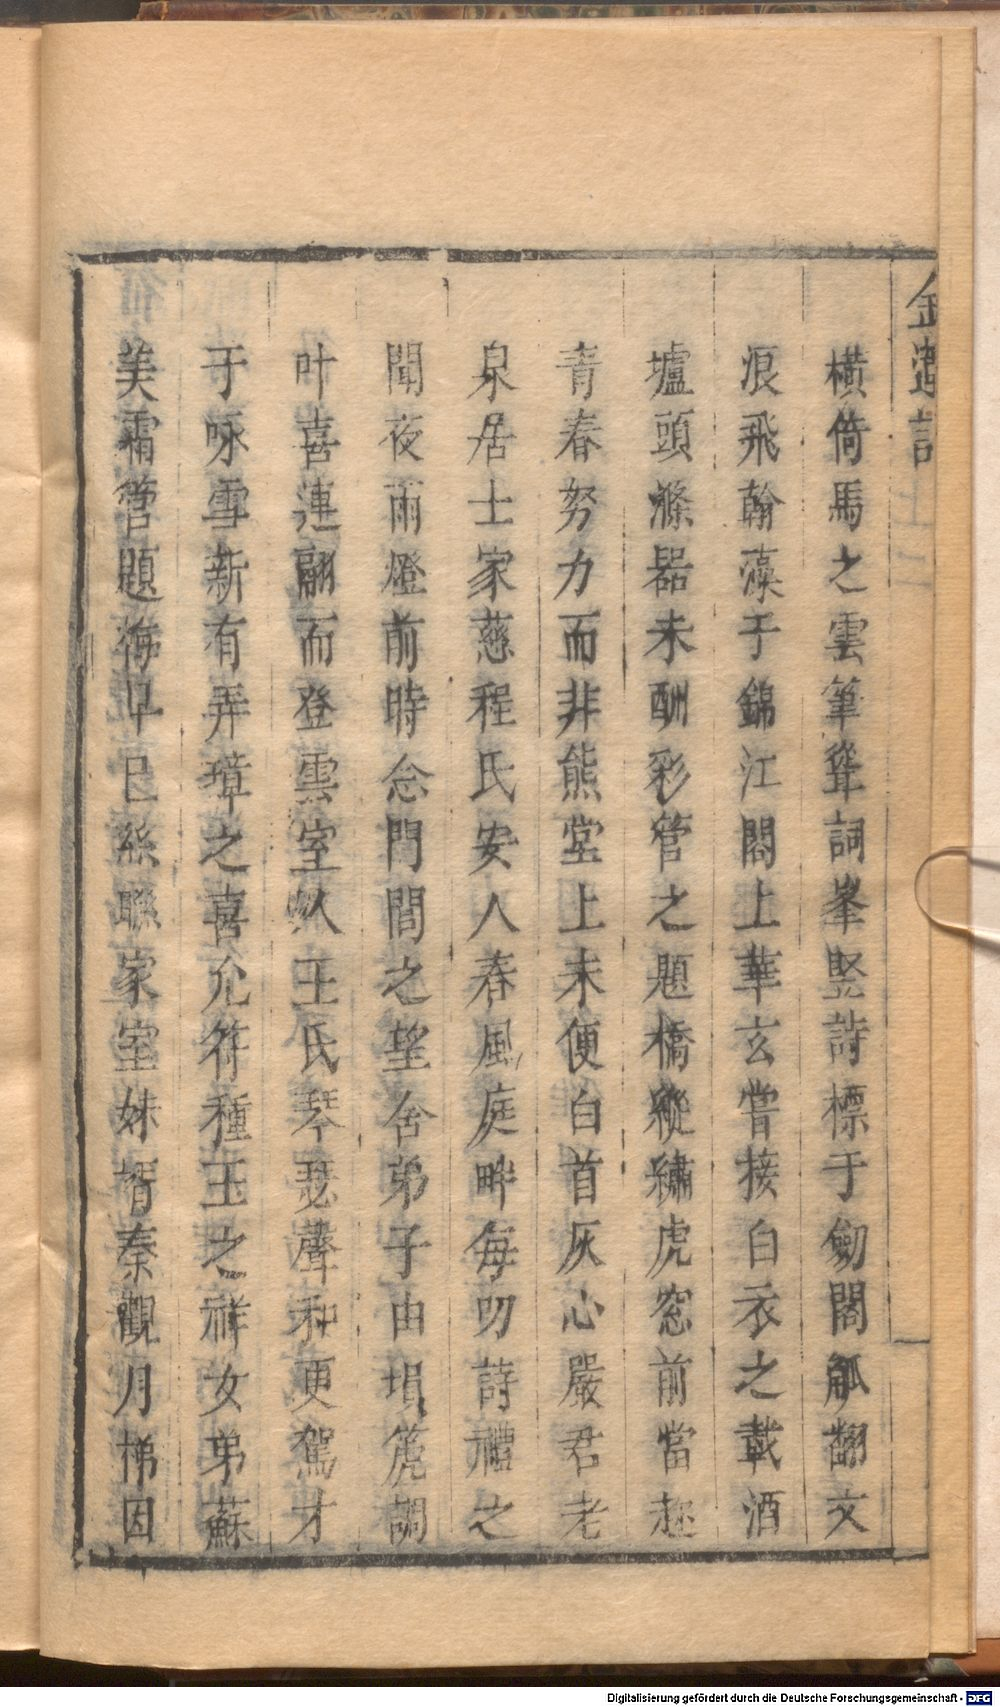 橫倚馬之雲筆聳詞峯竪詩標于劒閣觚翻文
浪飛翰藻于錦江閣上華玄嘗接白衣之載酒
壚頭滌器未酬彩管之題橋縱繡虎窓前當趂
青春努力而非熊堂上未便白首灰心嚴君老
泉居士家慈程氏安人春風庭畔每叨詩禮之
聞夜雨燈前時念門閭之望舍弟子由塤箎調
叶喜連翩而登雲室人王氏琴瑟聲和更駕才
于咏雪新有弄璋之喜允符種玉之祥女弟蘇
美霜管題梅早已絲聯家室妹壻秦觀月梯因
Digitalisierung gefördert durch die Deutsche Forschungsgemeinschaft - DFG